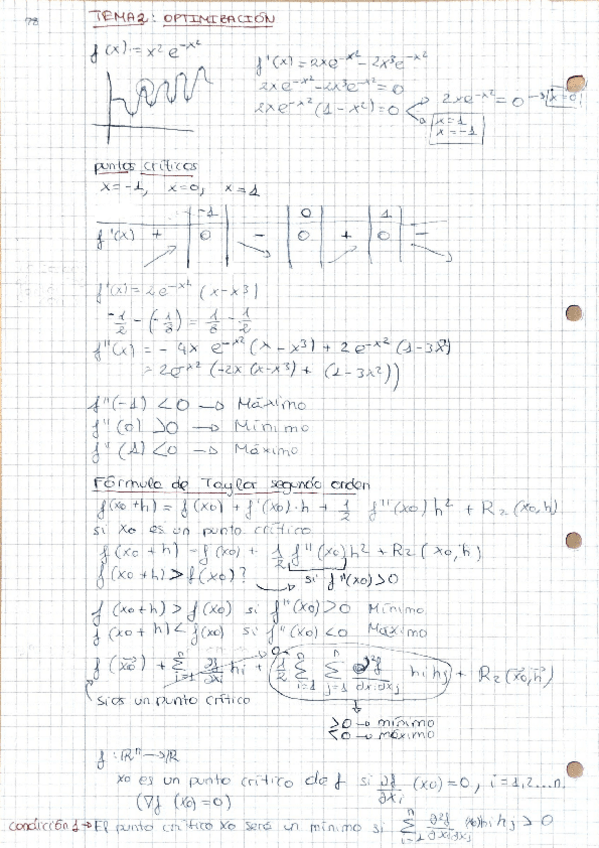 78
TEMA2: OPTIMIZACIÓN
f(x) = x² e^-x²
f'(x) = 2xe^-x² - 2x³e^-x²
2xe^-x² - 2x³e^-x² = 0
2xe^-x² (1 - x²) = 0
2xe^-x² = 0 → x=0
x=1
x=-1
puntos críticos
x=-1, x=0, x=1
-1 0 1
f'(x) + 0 - 0 + 0 -
f'(x) = 2e^-x² (x - x³)
f''(x) = -4x e^-x² (x - x³) + 2e^-x² (1-3x²)
= 2e^-x² (-2x (x-x³) + (1-3x²))
f''(-1) <0 → Máximo
f''(0) >0 → Mínimo
f''(1) <0 → Máximo
Fórmula de Taylor segundo orden
f(x0+h) = f(x0) + f'(x0)·h + 1/2 f''(x0) h² + R2(x0,h)
si x0 es un punto crítico
f(x0+h) = f(x0) + 1/2 f''(x0)h² + R2(x0,h)
f(x0+h) > f(x0)? → si f''(x0)>0
f(x0+h) > f(x0) si f''(x0)>0 Mínimo
f(x0+h) < f(x0) si f''(x0)<0 Máximo
f(x0) + Σ i=1 n ∂f/∂xi hi + 1/2 Σ i=1 n Σ j=1 n ∂²f/∂xi∂xj hi hj + R2(x0,h)
0
si es un punto crítico
>0 → mínimo
<0 → máximo
f: ℝⁿ → ℝ
x0 es un punto crítico de f si ∂f/∂xi (x0) = 0, i=1,2...n.
(∇f (x0) = 0)
condición 1 → El punto crítico x0 será un mínimo si Σ i=1 n ∂²f/∂xi∂xj (x0) hi hj > 0